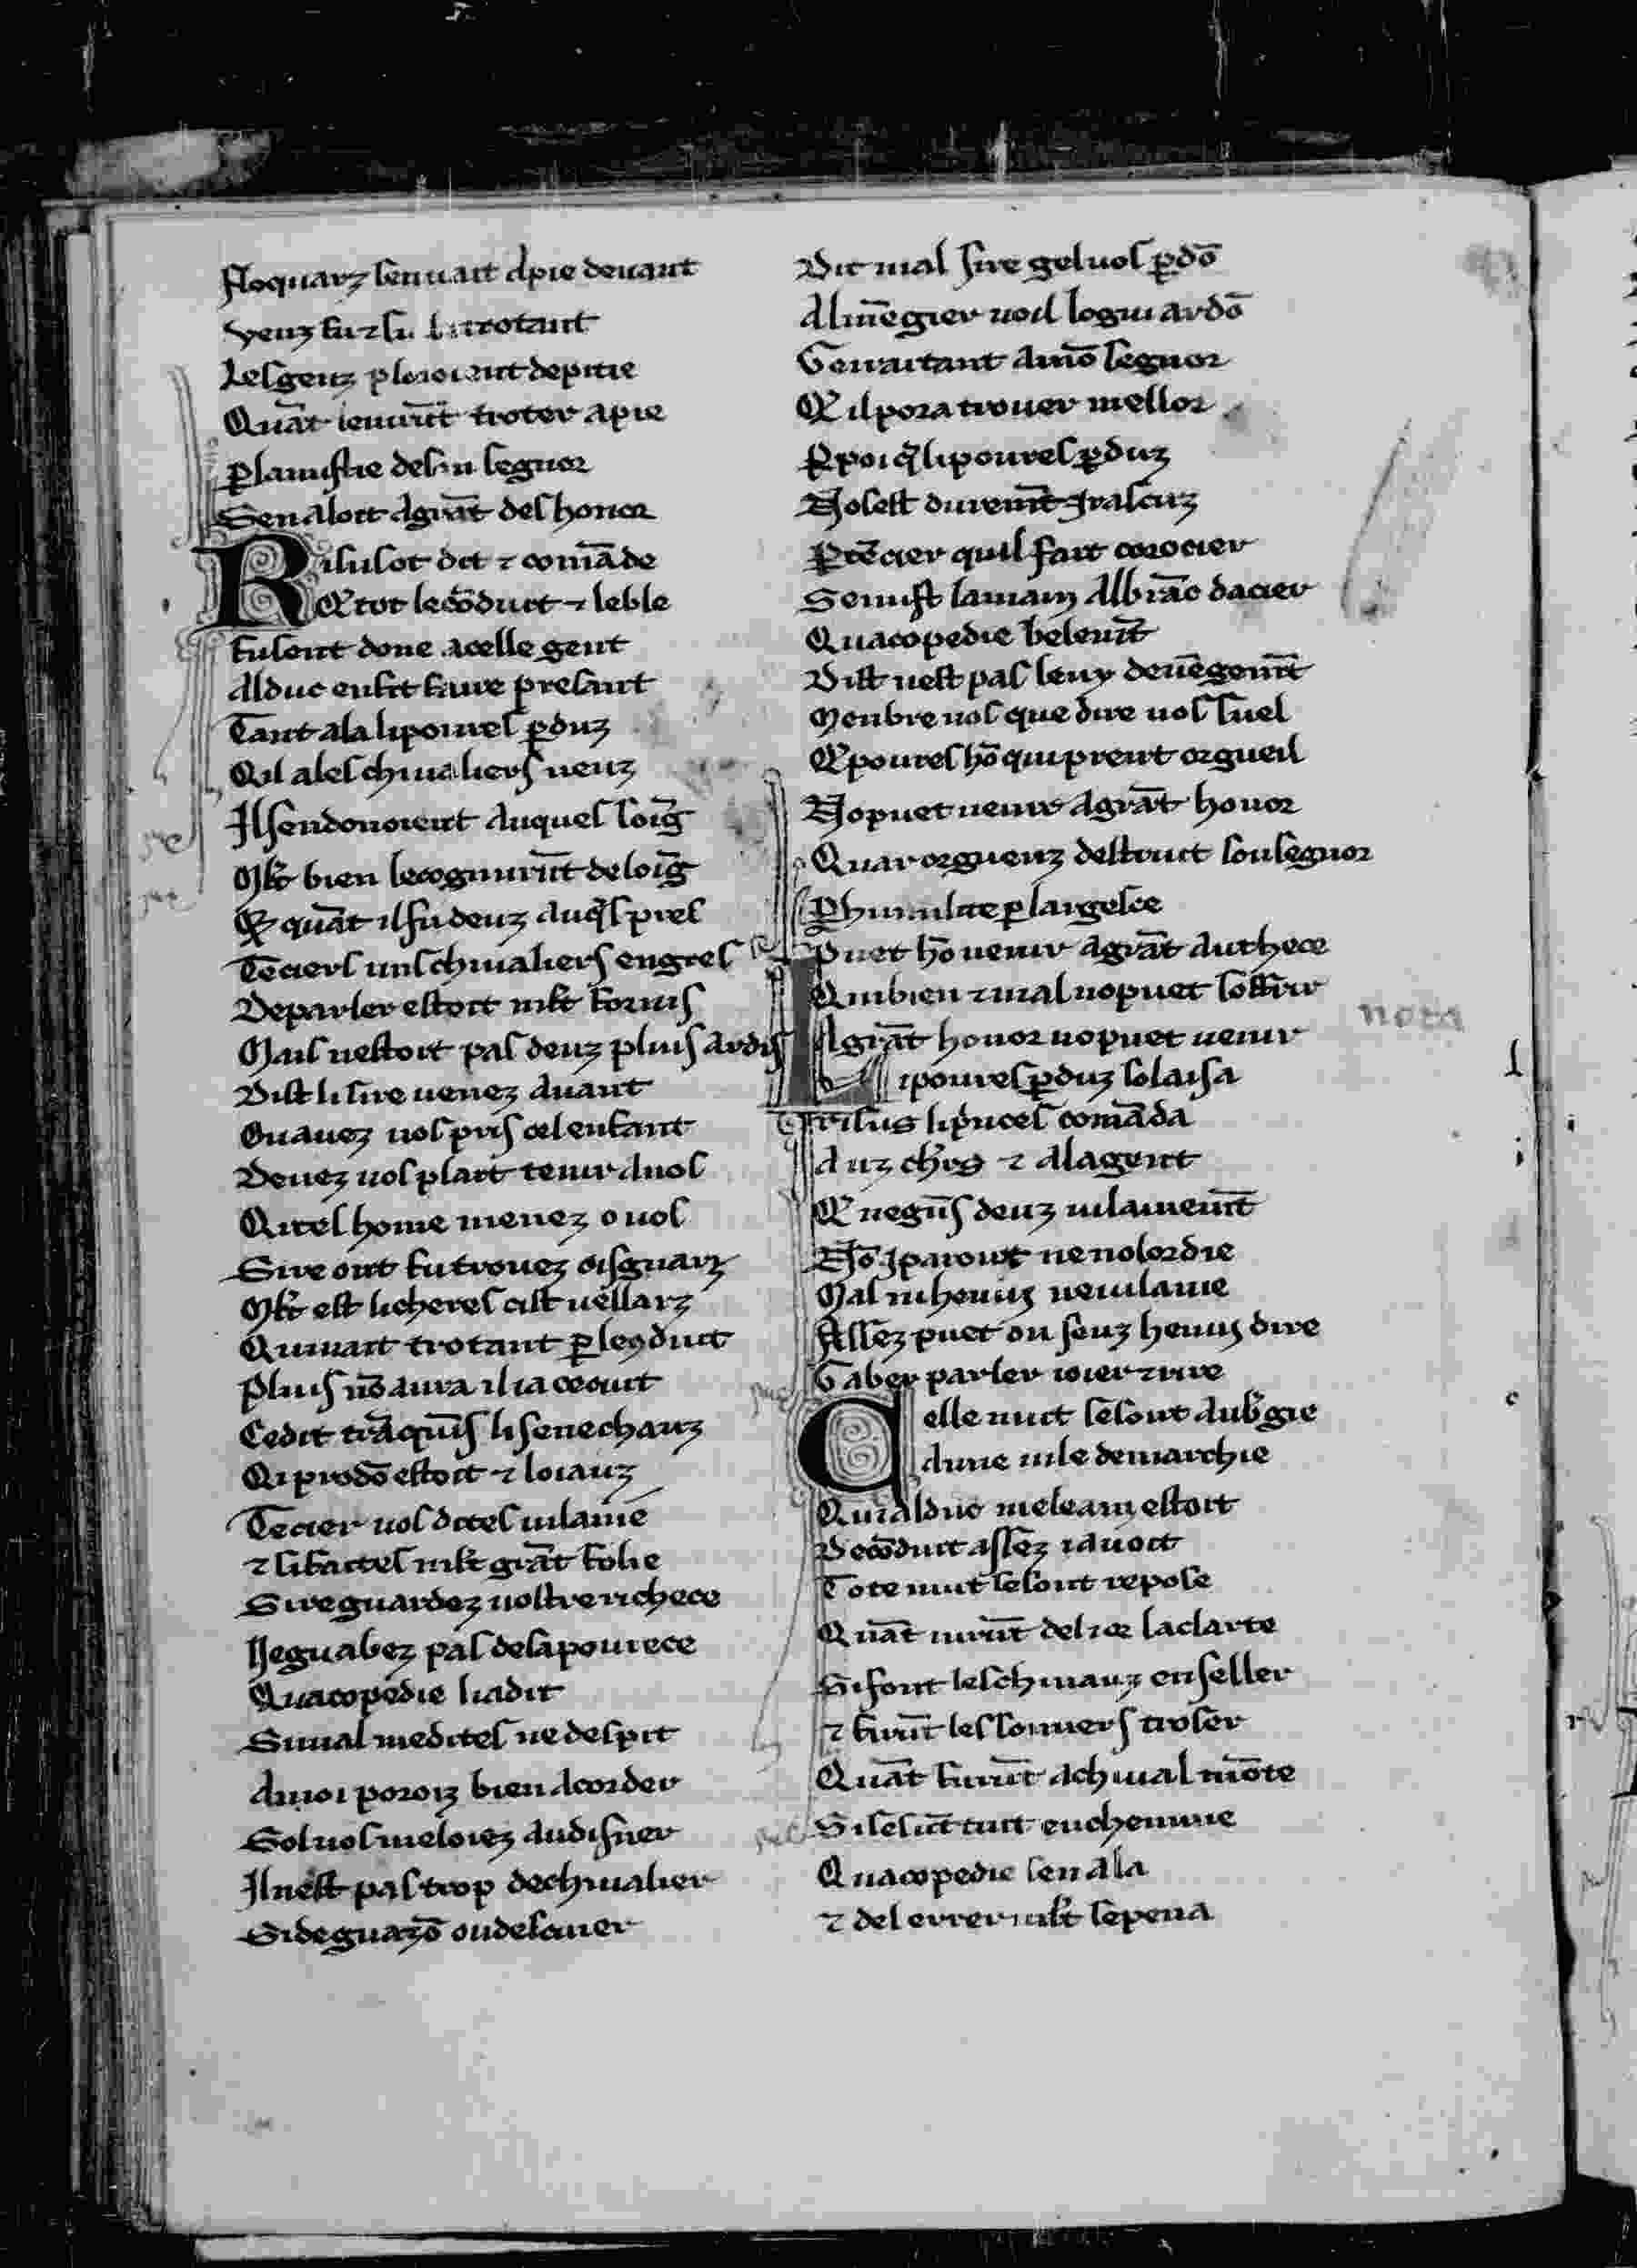 floquarz senuait apie deuant
venz fu ⁊ si li trotant
Les genz ploroient de pitie
Quãt le uirẽt troter a pie
ꝑ la uistie de son segnor
Sen aloit a grãt deshonor
Risus ot dit ⁊ comãde
Qe tot le cõduit ⁊ le ble
fusent done a celle gent
Al duc en fet faire presant
Tant ala li poures ꝑduz
Qil a les chiualiers ueuz
Il sendonoient auques soĩg
Mlt bien le cognurũt de loĩg
Et quãt il fu deuz auqs pres
Tẽciers uns chiualiers engres
De parler estoit mlt fornis
Mais nestoit pas deuz pluis ardis
Dist li sire uenez auant
Ou auez uos pris cel enfant
Deuez uos plait tenir a uos
Qi tel home menez o uos
Sire ont fu trouez cis guarz
Mlt est licheres cist uellarz
Qui uait trotant ꝑ le cõduit
Pluis nõ aura il ia ce cuit
Ce dit trãquis li senechauz
Qi prodõ estoit ⁊ loiauz
Tẽcier uos dites uilanie
⁊ si faites mlt grãt folie
Sire guardez uostre richece
Ne guabez pas de sa pourece
Quacopedie li a dit
Si mal me dites ne despit
A moi poroiz bien acorder
Sol uos me loiez au disner
Il nest pas trop de chiualier
Si de guarzõ ou descuier
Dit mal sire gel uos ꝑdõ
Al mẽgier uoil lo guiardõ
Ge uait tant a mõ segnor
Qe il pora trouer mellor
Et poi q li poures ꝑduz
No sest duremẽt irascuz
ꝑ tẽcier quil fait corocier
Se mist la main al brãc dacier
Quacopedie belemẽt
Dist nest pas leuy deuẽgemẽt
Menbre uos que dire uos suel
Qe poures hõ qui prent orgueil
No puet uenir a grãt honor
Quar orguenz destruit son segnor
ꝑ humilite ꝑ largesce
Puet hõ uenir a grãt authece
Qui bien ⁊ mal no puet sofrir
A grãt honor no puet uenir
Li poures ꝑduz so laisa
Trisus li princes comãda
Auz chrs ⁊ a la gent
Qe negũs deuz uilainemẽt
Nõ i parout ne no lor die
Mal ni henuis ne uilanie
Assez puet on senz henuis dire
Gaber parler ioier ⁊ rire
Celle nuit se sont aubgie
A une uile de marchie
Qui al duc meleain estoit
De cõduit assez i auoit
Tote nuit se sont repose
Quãt uirũt del ior la clarte
Si font les chiuauz enseller
⁊ firũt les somiers troser
Quãt furũt a chiual mõte
Si se sũt tuit enchemine
Quacopedie sen ala
⁊ del errer mlt se pena
nota